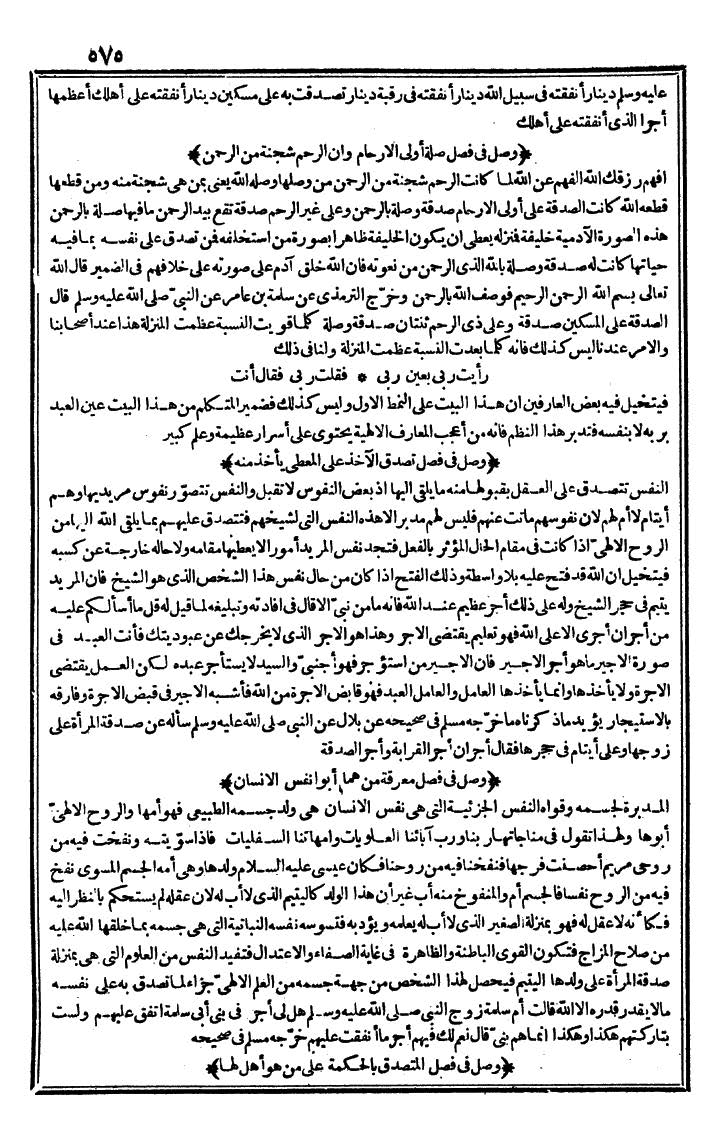 ٥٧٥
عليه وسلم دينار أنفقته في سبيل الله دينار أنفقته في رقبة دينار تصدقت به على مسكين دينار أنفقته على أهلك أعظمها
أجرا الذي أنفقته على أهلك
﴿وصل في فصل صلة أولى الارحام وان الرحم شجنة من الرحمن﴾
افهم رزقك الله الفهم عن الله لما كانت الرحم شجنة من الرحمن من وصلها وصله الله يعني بمن هي شجنة منه ومن قطعها
قطعه الله كانت الصدقة على أولى الارحام صدقة وصلة بالرحمن وعلى غير الرحم صدقة تقع بيد الرحمن ما فيها صلة بالرحمن
هذه الصورة الآدمية خليفة فنزله يعطى ان يكون الخليفة ظاهرا بصورة من استخلفه فمن تصدق على نفسه بما فيه
حياتها كانت له صدقة وصلة بالله الذي الرحمن من نعوته فان الله خلق آدم على صورته على خلافهم في الضمير قال الله
تعالى بسم الله الرحمن الرحيم فوصف الله بالرحمن وخرّج الترمذى عن سلمة بن عامر عن النبيّ صلى الله عليه وسلم قال
الصدقة على المسكين صدقة وعلى ذي الرحم ثنتان صدقة وصلة كلما قويت النسبة عظمت المنزلة هذا عند أصحابنا
والامر عندنا ليس كذلك فانه كلما بعدت النسبة عظمت المنزلة ولنا في ذلك
رأيت ربى بعين ربى * فقلت ربى فقال أنت
فيتخيل فيه بعض العارفين ان هذا البيت على النمط الاول وليس كذلك فضمير المتكلم من هذا البيت عين العبد
بربه لا بنفسه فتدبر هذا النظم فانه من أعجب المعارف الالهية يحتوى على أسرار عظيمة وعلم كبير
﴿وصل في فصل تصدق الآخذ على المعطى بأخذه منه﴾
النفس تتصدق على العقل بقبولها منه ما يلقى اليها اذ بعض النفوس لا تقبل والنفس تتصوّر نفوس مريديها وهم
أيتام لا أم لهم لان نفوسهم ماتت عنهم فليس لهم مدبر الا هذه النفس التي لشيخهم فتتصدق عليهم بما يلقى الله اليها من
الروح الالهىّ اذا كانت في مقام الحال المؤثر بالفعل فتجد نفس المريد أمورا لا يعطيها مقامه ولا حاله خارجة عن كسبه
فيتخيل ان الله قد فتح عليه بلا واسطة وذلك الفتح اذا كان من حال نفس هذا الشخص الذي هو الشيخ فان المريد
يتيم في حجر الشيخ وله على ذلك أجر عظيم عند الله فانه ما من نبىّ الا قال في افادته وتبليغه لما قيل له قل ما أسألكم عليه
من أجر ان أجرى الا على الله فهو تعليم يقتضى الاجر وهذا هو الاجر الذي لا يخرجك عن عبوديتك فأنت العبد في
صورة الاجير ما هو أجر الاجير فان الاجير من استؤجر فهو أجنبىّ والسيد لا يستأجر عبده لكن العمل يقتضى
الاجرة ولا يأخذها وانما يأخذها العامل والعامل العبد فهو قابض الاجرة من الله فأشبه الاجير في قبض الاجرة وفارقه
بالاستيجار يؤيد ما ذكرناه ما خرّجه مسلم في صحيحه عن بلال عن النبي صلى الله عليه وسلم سأله عن صدقة المرأة على
زوجها وعلى أيتام في حجرها فقال أجران أجر القرابة وأجر الصدقة
﴿وصل في فصل معرفة من هما أبوا نفس الانسان﴾
المدبرة لجسمه وقواه النفس الجزئية التي هي نفس الانسان هي ولد جسمه الطبيعى فهو أمها والروح الالهىّ
أبوها ولهذا تقول في مناجاتها ربنا ورب آبائنا العلويات وامهاتنا السفليات فاذا سوّيته ونفخت فيه من
روحى مريم أحصنت فرجها فنفخنا فيه من روحنا فكان عيسى عليه السلام ولدها وهى أمه الجسم المسوى نفخ
فيه من الروح نفسا فالجسم أم والمنفوخ منه أب غير أن هذا الولد كاليتيم الذي لا أب له لان عقله لم يستحكم بالنظر اليه
فكأنه لا عقل له فهو بمنزلة الصغير الذي لا أب له يعلمه ويؤدبه فتسوسه نفسه النباتية التي هي جسمه بما خلقها الله عليه
من صلاح المزاج فتكون القوى الباطنة والظاهرة في غاية الصفاء والاعتدال فتفيد النفس من العلوم التي هي بمنزلة
صدقة المرأة على ولدها اليتيم فيحصل لهذا الشخص من جهة جسمه من العلم الالهىّ جزاء لما تصدق به على نفسه
ما لا يقدر قدره الا الله قالت أم سلمة زوج النبي صلى الله عليه وسلم هل لى أجر في بنى أبى سلمة انفق عليهم ولست
بتاركتهم هكذا وهكذا انما هم بنىّ قال نعم لك فيهم أجر ما أنفقت عليهم خرّجه مسلم في صحيحه
﴿وصل في فصل المتصدق بالحكمة على من هو أهل لها﴾